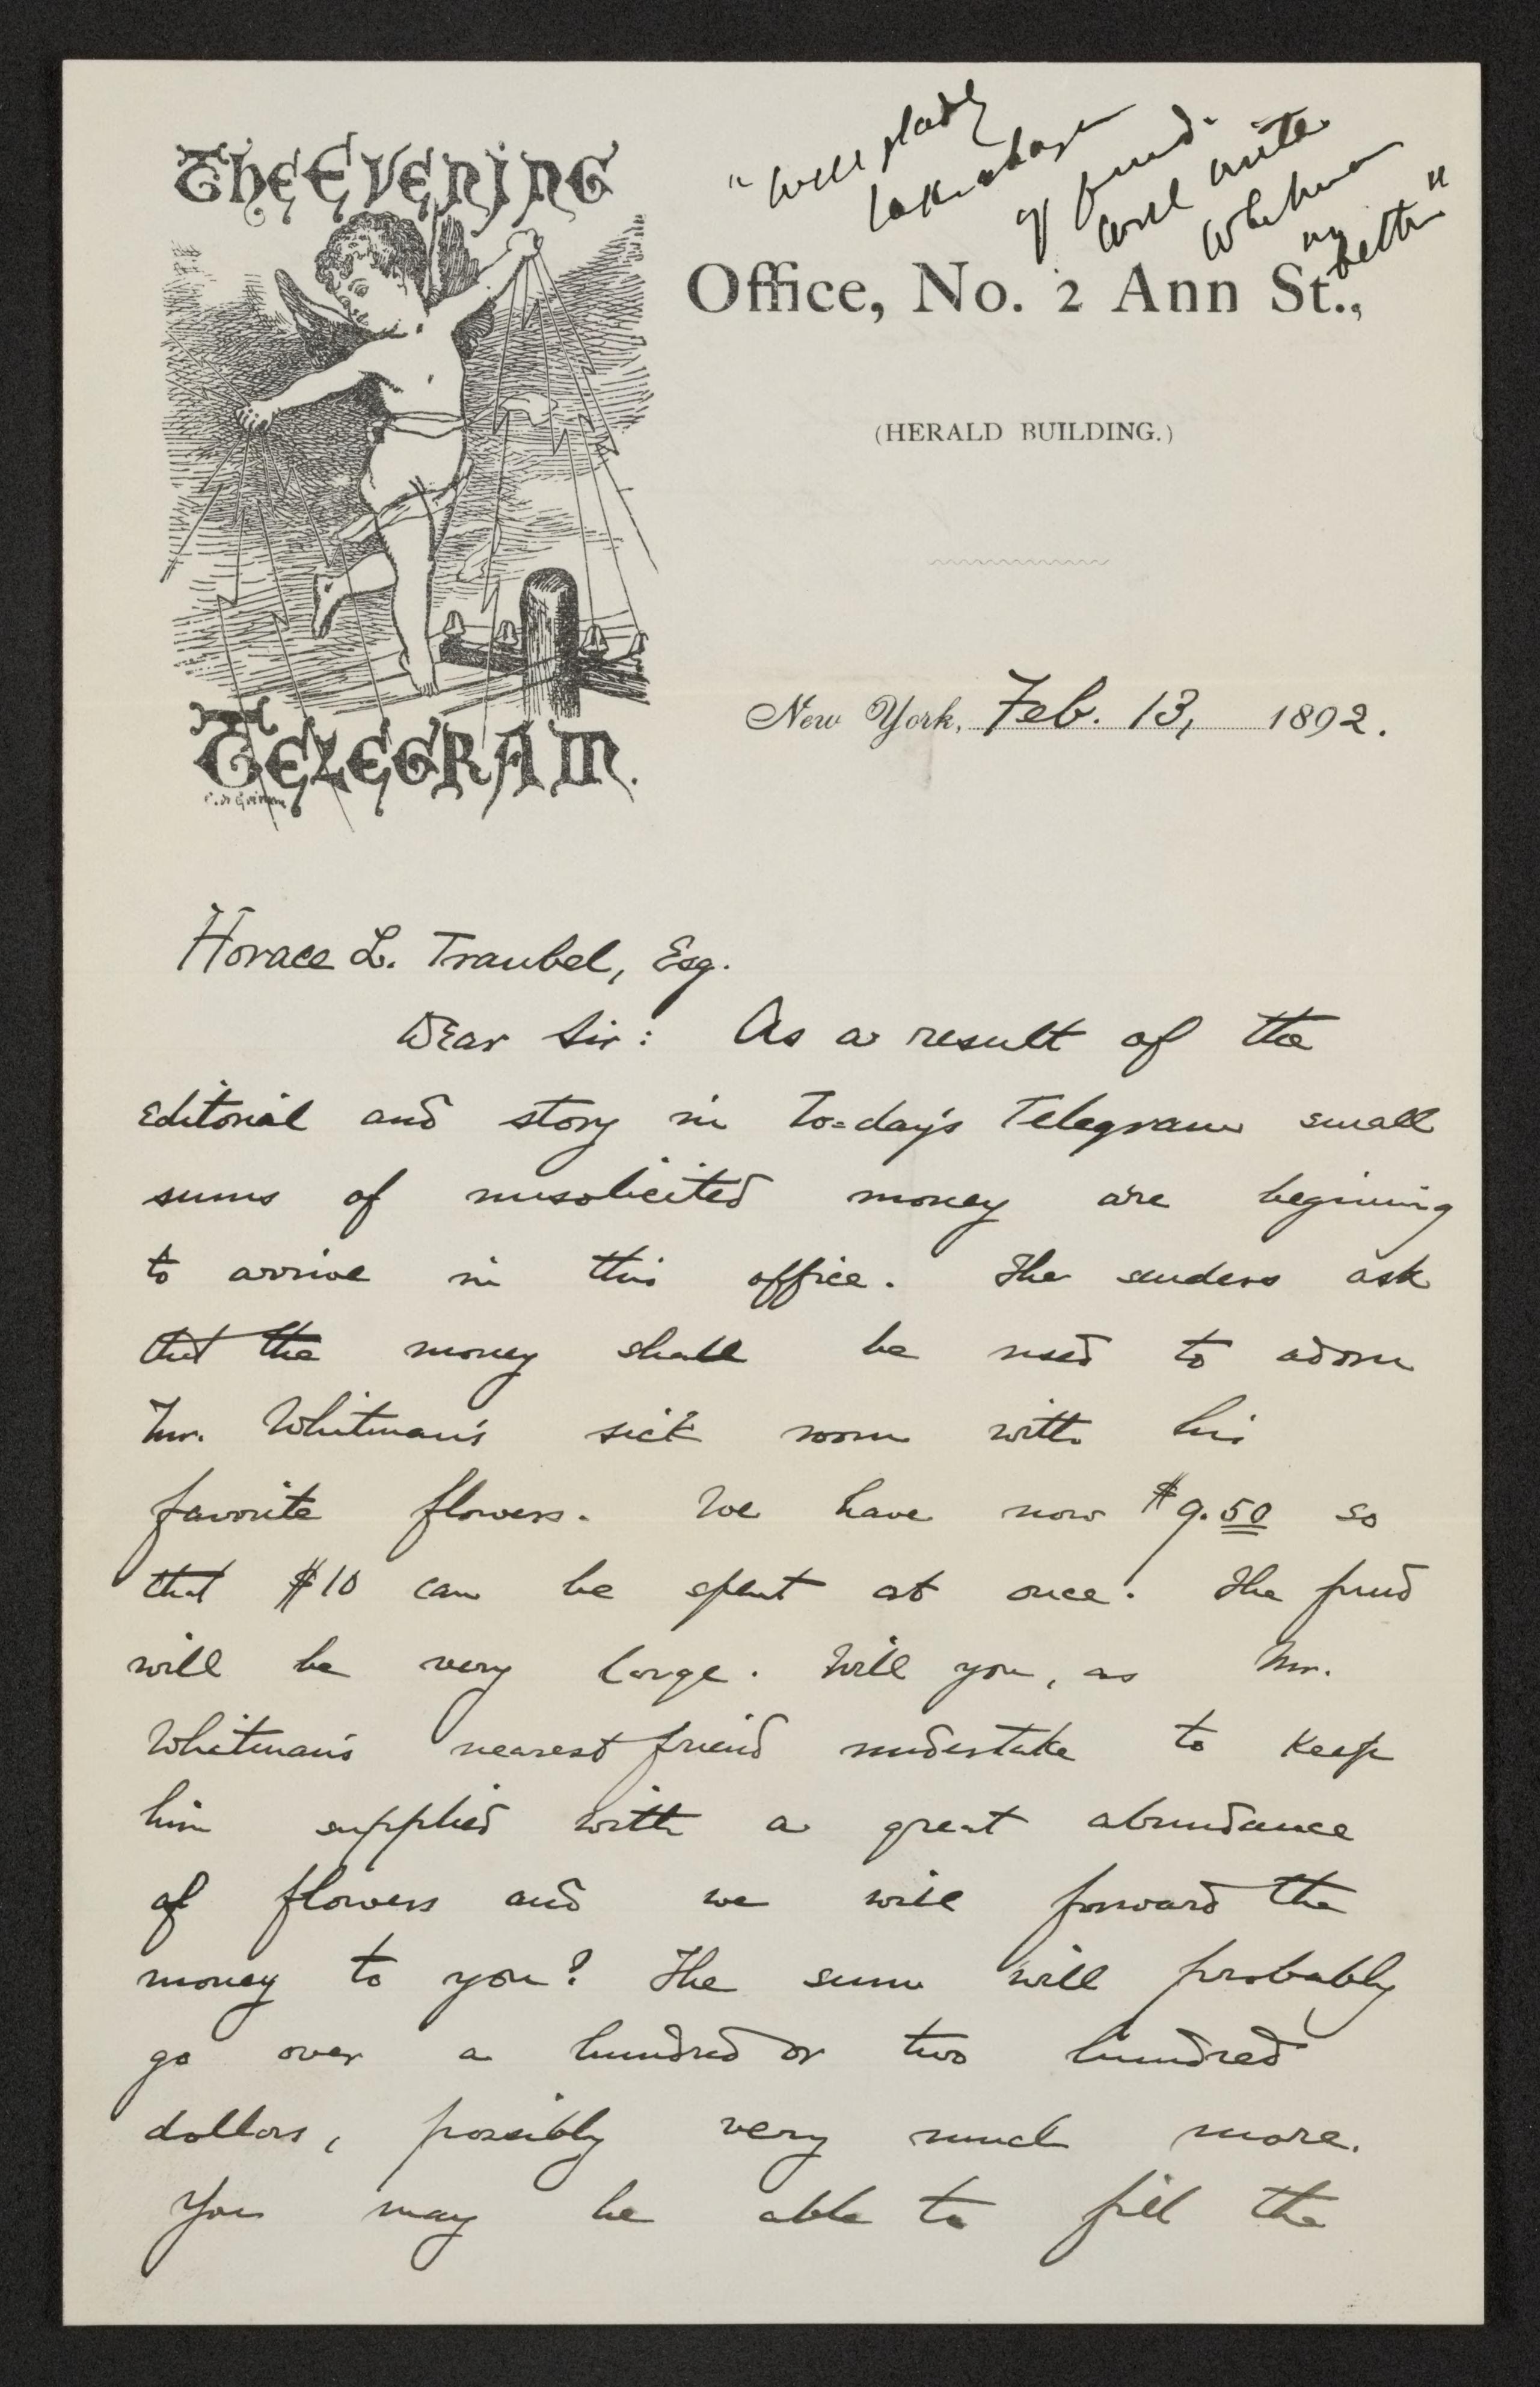 The Evening
Telegram.
"Will gladly
take charge
of fund.
Will write
Whitman
no
better"
Office, No. 2 Ann St.,
(HERALD BUILDING.)
New York, Feb. 13, 1892.
Horace L. Traubel, Esq.
Dear Sir: As a result of the
editorial and story in to-day's Telegram small
sums of unsolicited money are begining
to arrive in this office. The senders ask
that the money shall be used to adorn
Mr. Whitman's sick room with his
favorite flowers. We have now $9.50 so
that $10 can be spent at once. The fund
will be very large. Will you, as Mr.
Whitman's nearest friend undertake to keep
him supplied with a great abundance
of flowers and we will forward the
money to you? The sum will probably
go over a hundred or two hundred
dollars, possibly very much more.
You may be able to fill the